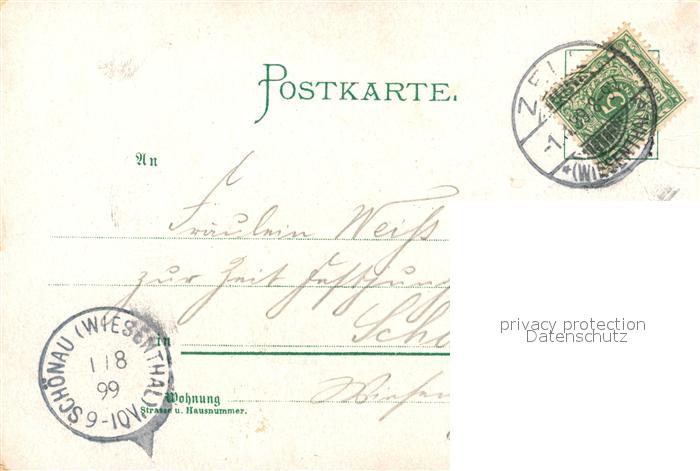 POSTKARTE.
ZELL
(WIESENTHAL)
An
Fräulein Weiß
zur Zeit
privacy protection
Datenschutz
in
SCHÖNAU (WIESENTHAL)
1 1 8
99
9-10V
Wohnung
Strasse u. Hausnummer.